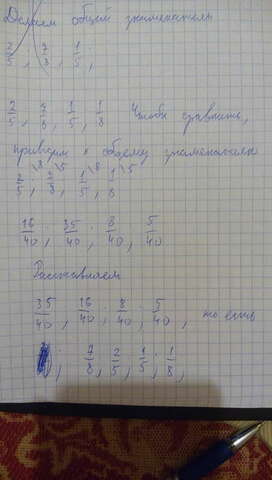 Делаем общий знаменатель
2/5 ; 7/8 ; 1/5 ;
2/5 , 7/8 , 1/5 , 1/8 Чтобы сравнить,
приводим к общему знаменателю
2/5 \8 , 7/8 \5 , 1/5 \8 , 1/8 \5
16/40 ; 35/40 ; 8/40 ; 5/40
Расставляем
35/40 ; 16/40 ; 8/40 ; 5/40 , то есть
; 7/8 , 2/5 ; 1/5 ; 1/8 ,